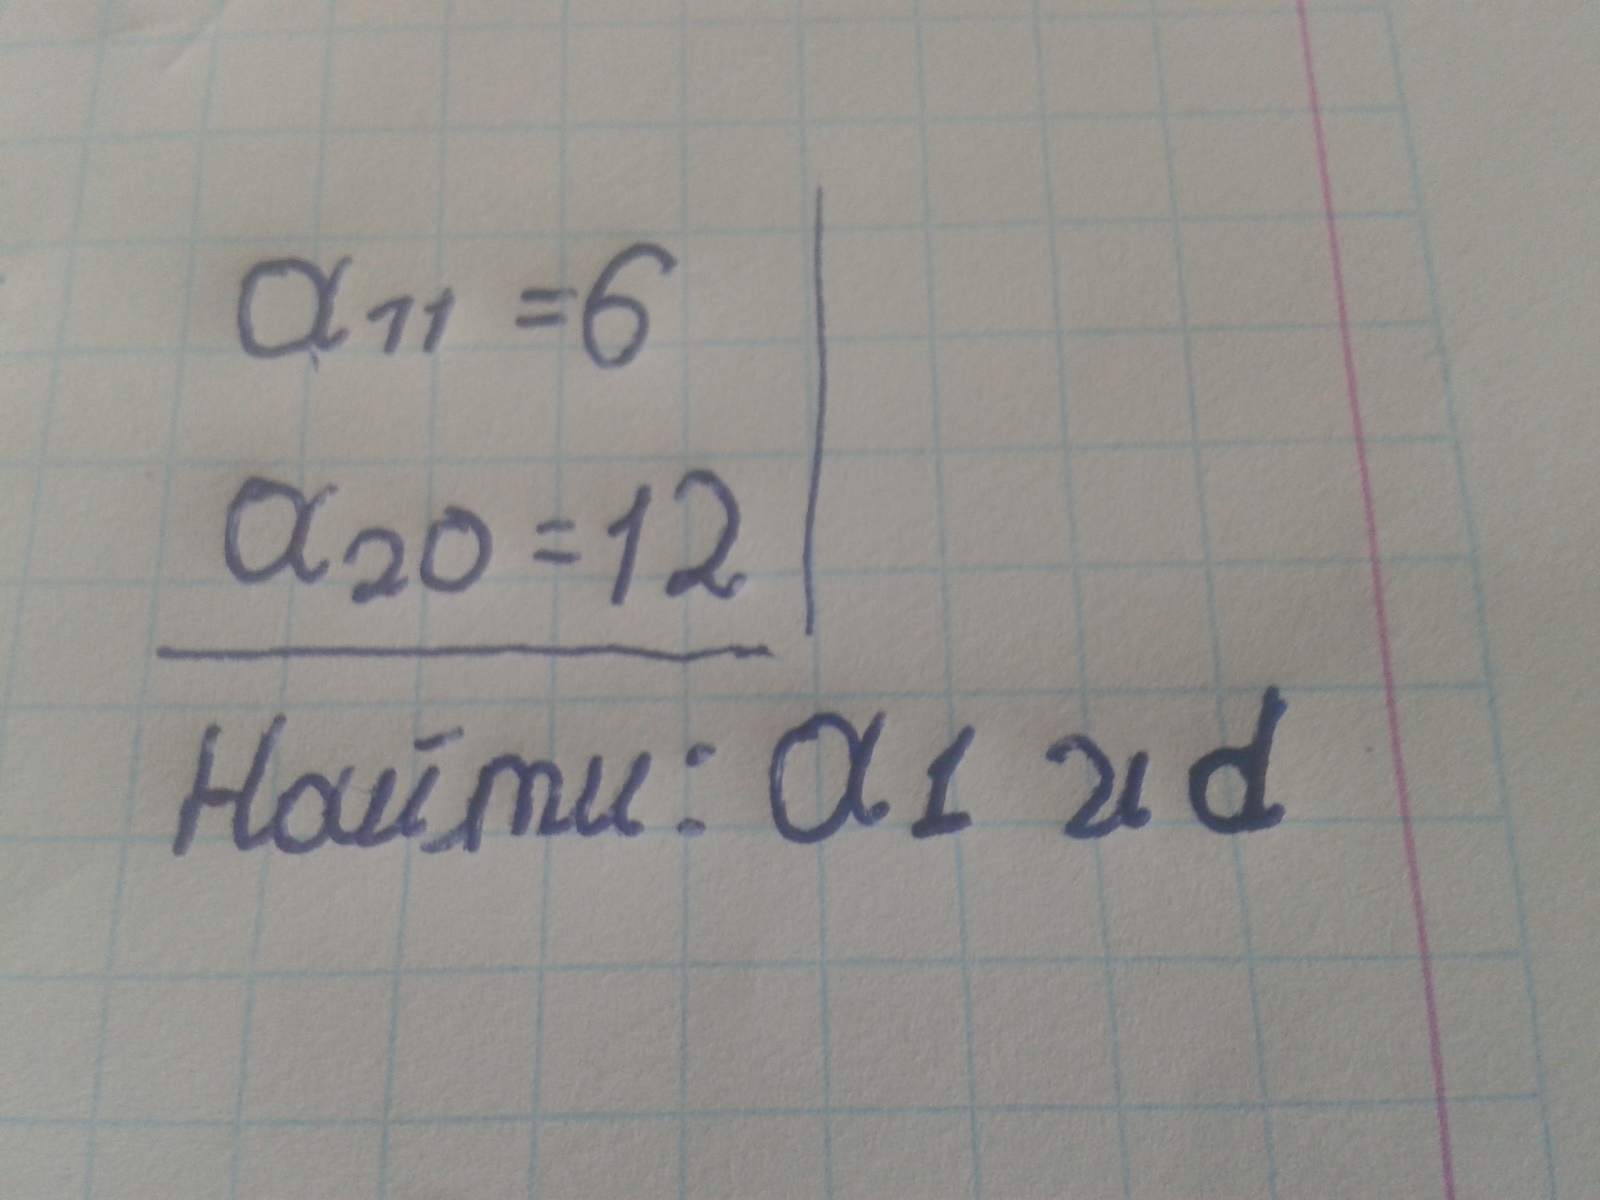 a11 = 6
a20 = 12
Найти: a1 и d